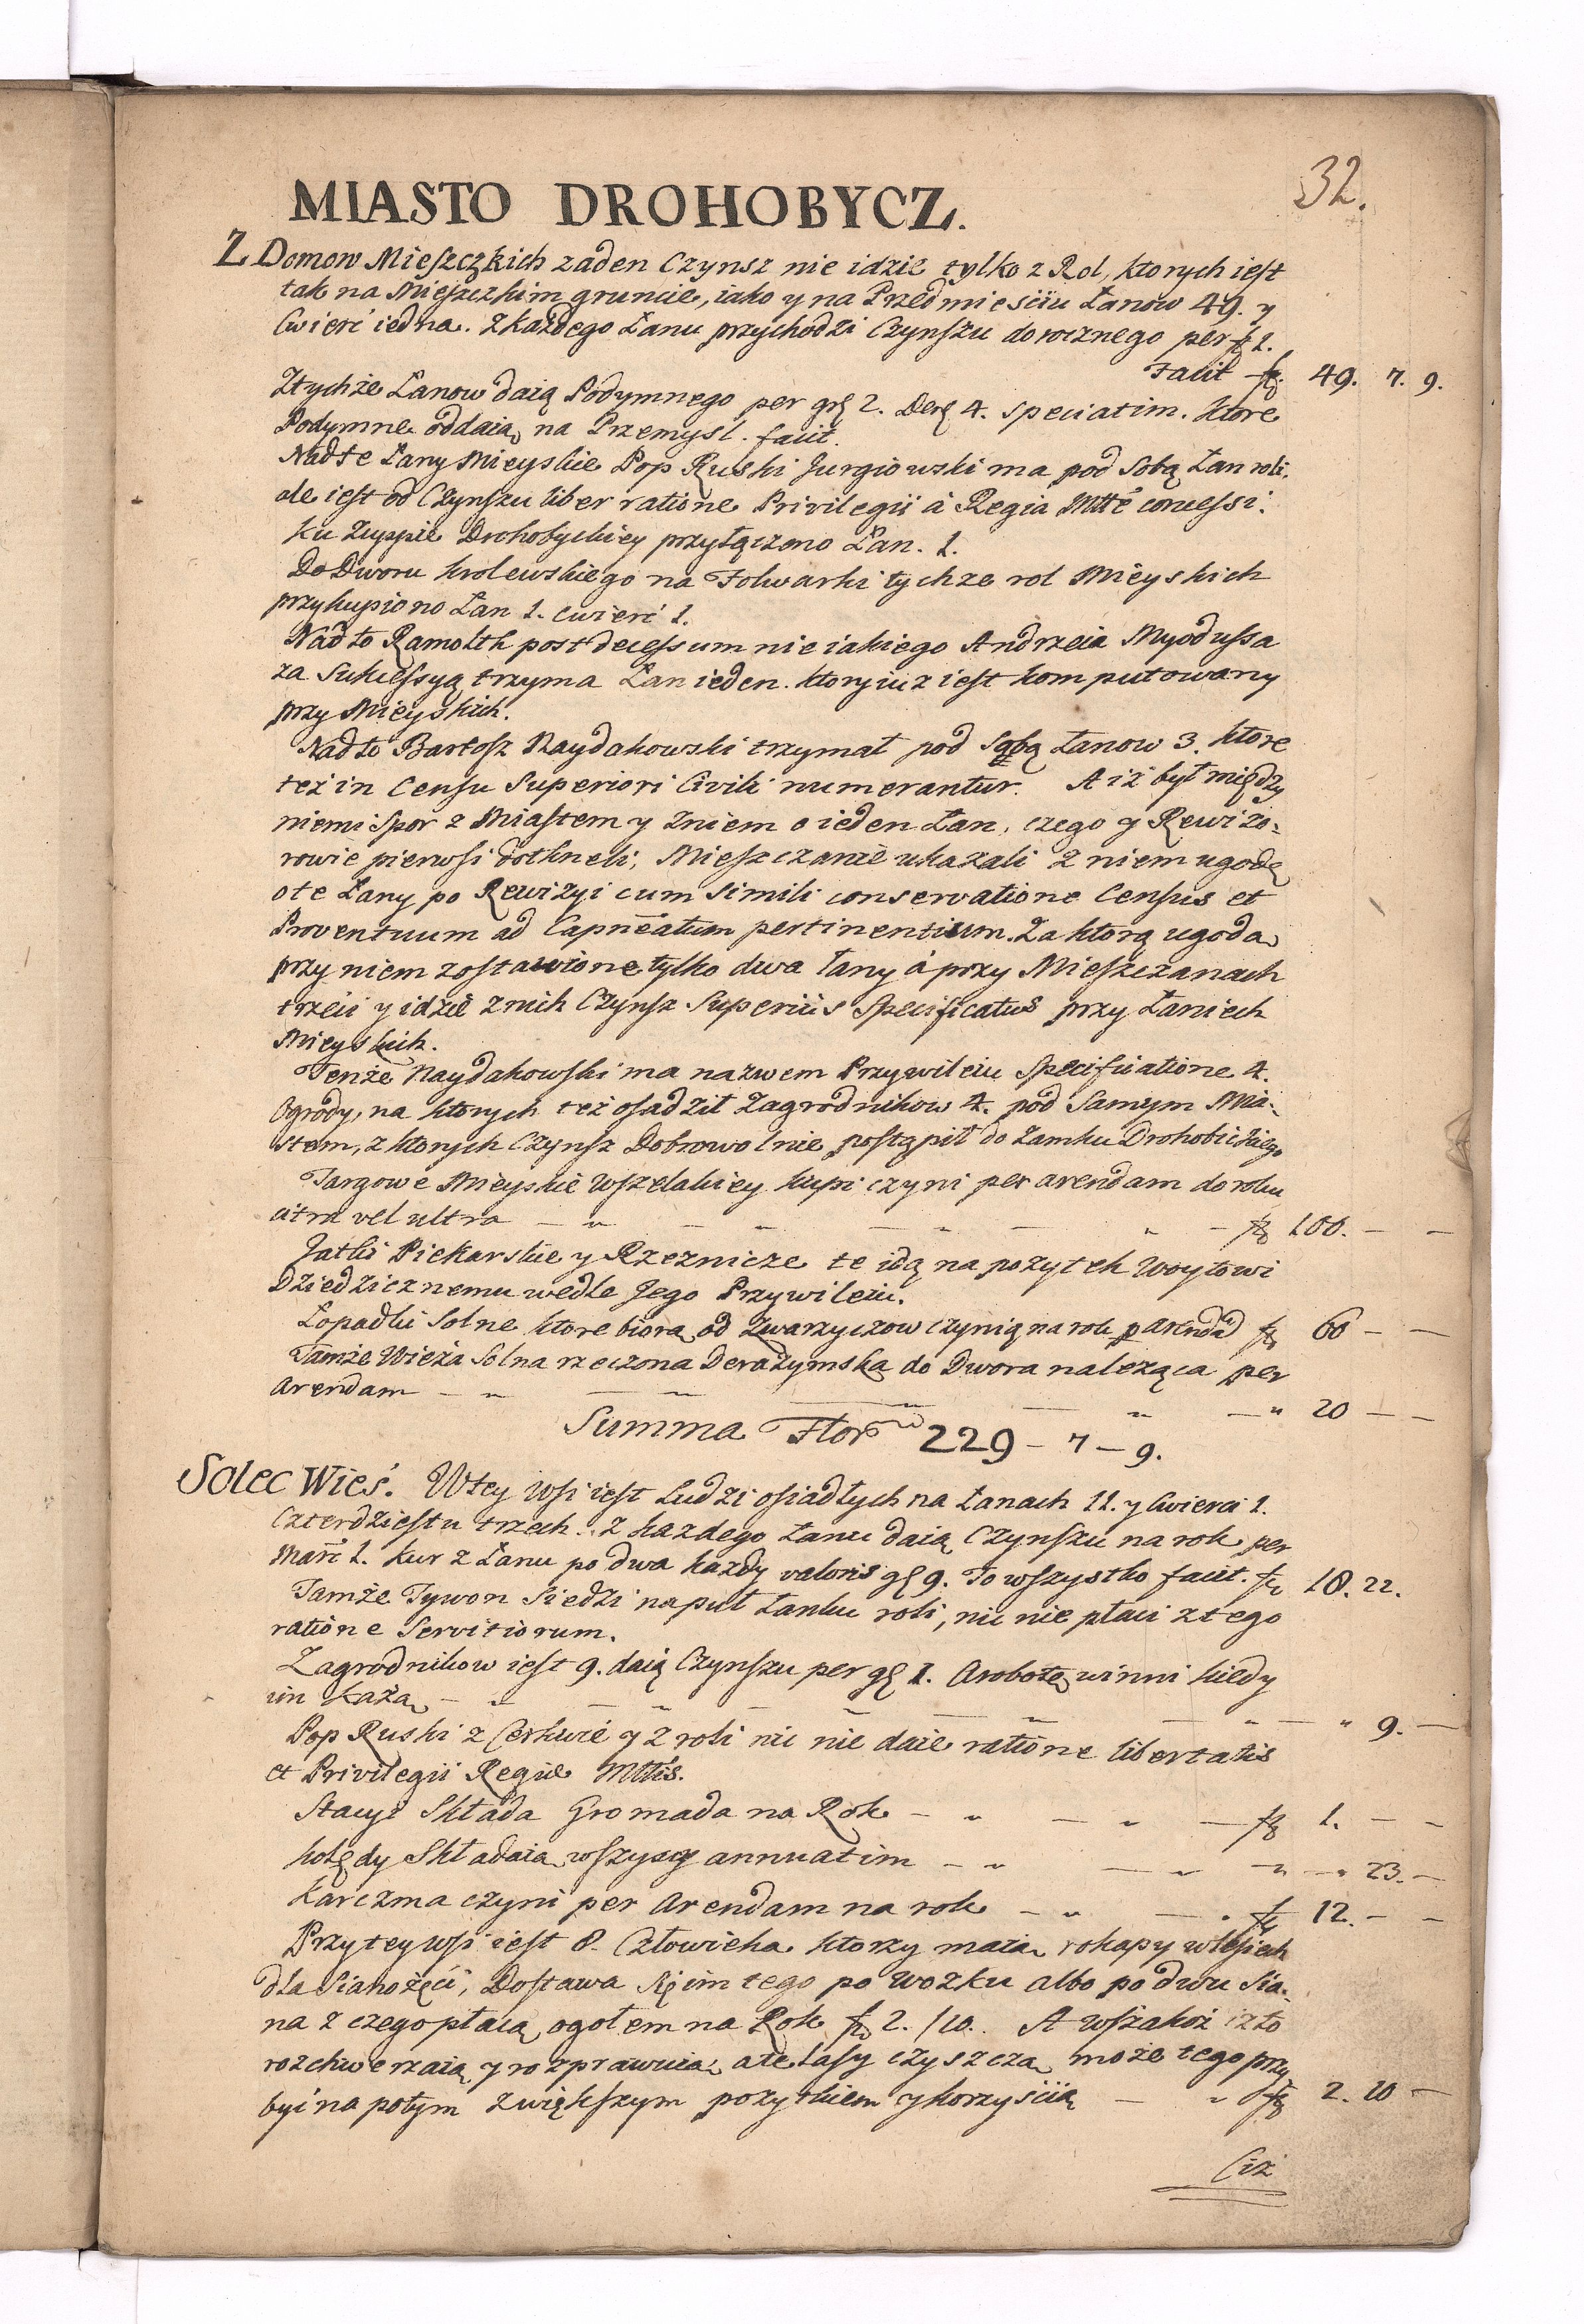 32.
MIASTO DROHOBYCZ.
Z Domow Mieszczkich zaden Czynsz nie idzie tylko z Rol, ktorych iest
tak na Mieszczkim gruncie, iako y na Przedmiesciu Łanow 49. y
Cwierć iedna. Z każdego Łanu przychodzi Czynszu dorocznego per fl 1.
Facit fl. 49. 7. 9.
Ztychże Łanow daią Podymnego per grß 2. Denß 4. speciatim. ktore
Podymne oddaią na Przemysl. facit.
Nad te Łany Mieyskie Pop Ruski Jurgiowski ma pod Sobą Łan roli.
ale iest od Czynszu liber ratione Privilegii á Regia Mtte concessi.
Ku Zuppie Drohobyckiey przyłączono Łan. 1.
Do Dworu Krolewskiego na Folwarki tychze rol Mieyskich
przykupiono Łan 1. cwierć 1.
Nad to Ramolth post decessum nieiakiego Andrzeia Myodussa
za Sukcessyą trzyma Łan ieden. ktory iuz iest komputowany
przy Mieyskich.
Nad to Bartosz Naydakowski trzymał pod Sobą Łanow 3. ktore
też in Censu Superiori Civili numerantur. A iż był między
niemi Spor z Miastem y Zniem o ieden Łan, czego y Rewizo-
rowie pierwsi dotkneli, Mieszczanie ukazali z niem ugodę
o te Łany po Rewizyi cum simili conservatione Census et
Proventuum ad Capneatum pertinentium. Za ktorą ugodą
przy niem zostawione tylko dwa Łany á przy Mieszczanach
trzeci y idzie znich Czynsz Superius Specificatus przy Łaniech
Mieyskich.
Tenże Naydakowski ma nazwem Przywileiu Specificatione 4.
Ogrody, na ktorych też osadził Zagrodnikow 4. pod Samym Mia-
stem, z ktorych Czynsz Dobrowolnie postąpił do Zamku Drohobickiego
Targowe Mieyskie Wszelakiey kupi czyni per arendam do roku
citra vel ultra - " - " - " - " - fl 100. - -
Jatki Piekarskie y Rzeznicze te idą na pożytek Woytowi
Dziedzicznemu wedle Jego Przywileiu.
Łopadki Solne ktore biorą od Zwarzyczow czynią na rok p Arendā fl 60 - -
Tamże Wieża Solna rzeczona Derażymska do Dwora należąca per
Arendam - " - " - " - " - " 20 - -
Summa Flor 229 - 7 - 9.
Solec Wieś. Wtey Wsi iest Ludzi osiadłych na Łanach 11. y Cwierci 1.
Czterdziestu trzech. z kazdego Łanu daią Czynszu na rok per
Marc 1. Kur z Łanu po dwa każdy valoris gß 9. To wszystko facit. fl 18. 22.
Tamże Tywon Siedzi na puł Łanku roli, nic nie płaci z tego
ratione Servitiorum.
Zagrodnikow iest 9. daią Czynszu per gß 1. A robotę winni kiedy
im każą - " - " - " - " - " 9. -
Pop Ruski z Cerkwie y z roli nic nie daie ratione libertatis
et Privilegii Regiæ Mttis.
Stacyi Składa Gromada na Rok - " - " - fl 1. - -
Kolędy Składaią wszyscy annuatim - " - " - " - " 23. -
Karczma czyni per Arendam na rok - " - " fl 12. - -
Przy tey wsi iest 8. Człowieka ktorzy maią rokapy wlesiech
dla Sianożęci, Dostawa Się im tego po Wozku albo po dwu Sia-
na z czego płacą ogołem na Rok fl 2. /10. A wszakoż iż to
rozchwerzaią y rozprawuią, ale lasy czyszczą może tego przy
być na potym zwiększym pożytkiem y korzyscią - " fl 2. 10 -
Ciż